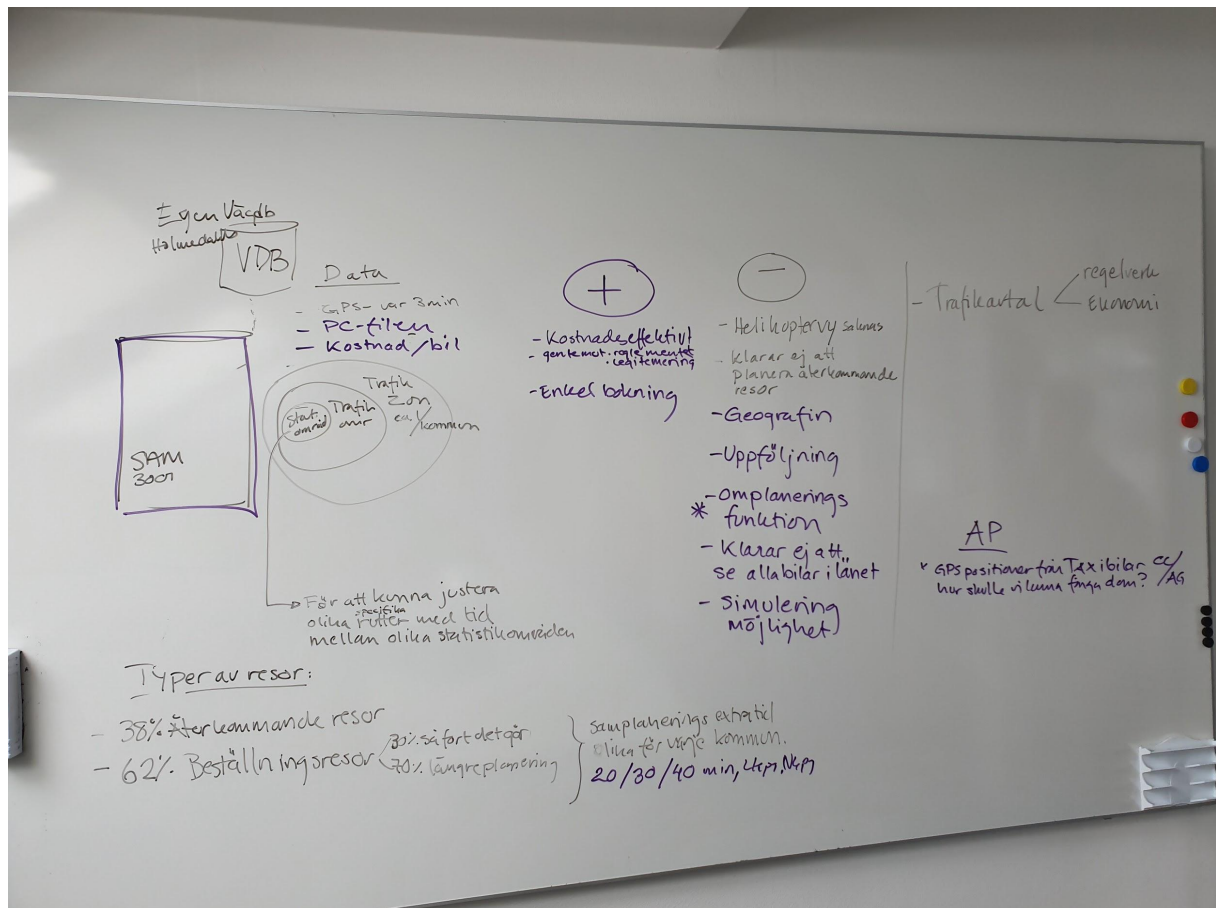 Egen Vägdb
VDB
SAM
3001
Data
- GPS - var 3min
- PC-filen
- Kostnad/bil
Stat
område
Trafik
Trafik
Zon
ca 1/kommun
För att kunna justera
specifika
olika rutter med tid
mellan olika statistikområden
+
- Kostnadseffektivt
- gentemot · reglementet
· Legitimering
- Enkel bokning
-
- Helikoptervy saknas
- Klarar ej att
planera återkommande
resor
- Geografin
- Uppföljning
- Omplanerings
* funktion
- Klarar ej att
se alla bilar i länet
- Simulering
möjlighet
- Trafikavtal
regelverk
Ekonomi
AP
* GPS positioner från Taxibilar CC/
hur skulle vi kunna fånga dom? AG
Typer av resor:
- 38% Återkommande resor
- 62% Beställningsresor
30% så fort det går
70% längre planering
Samplanerings extratid
olika för varje kommun.
20/30/40 min,